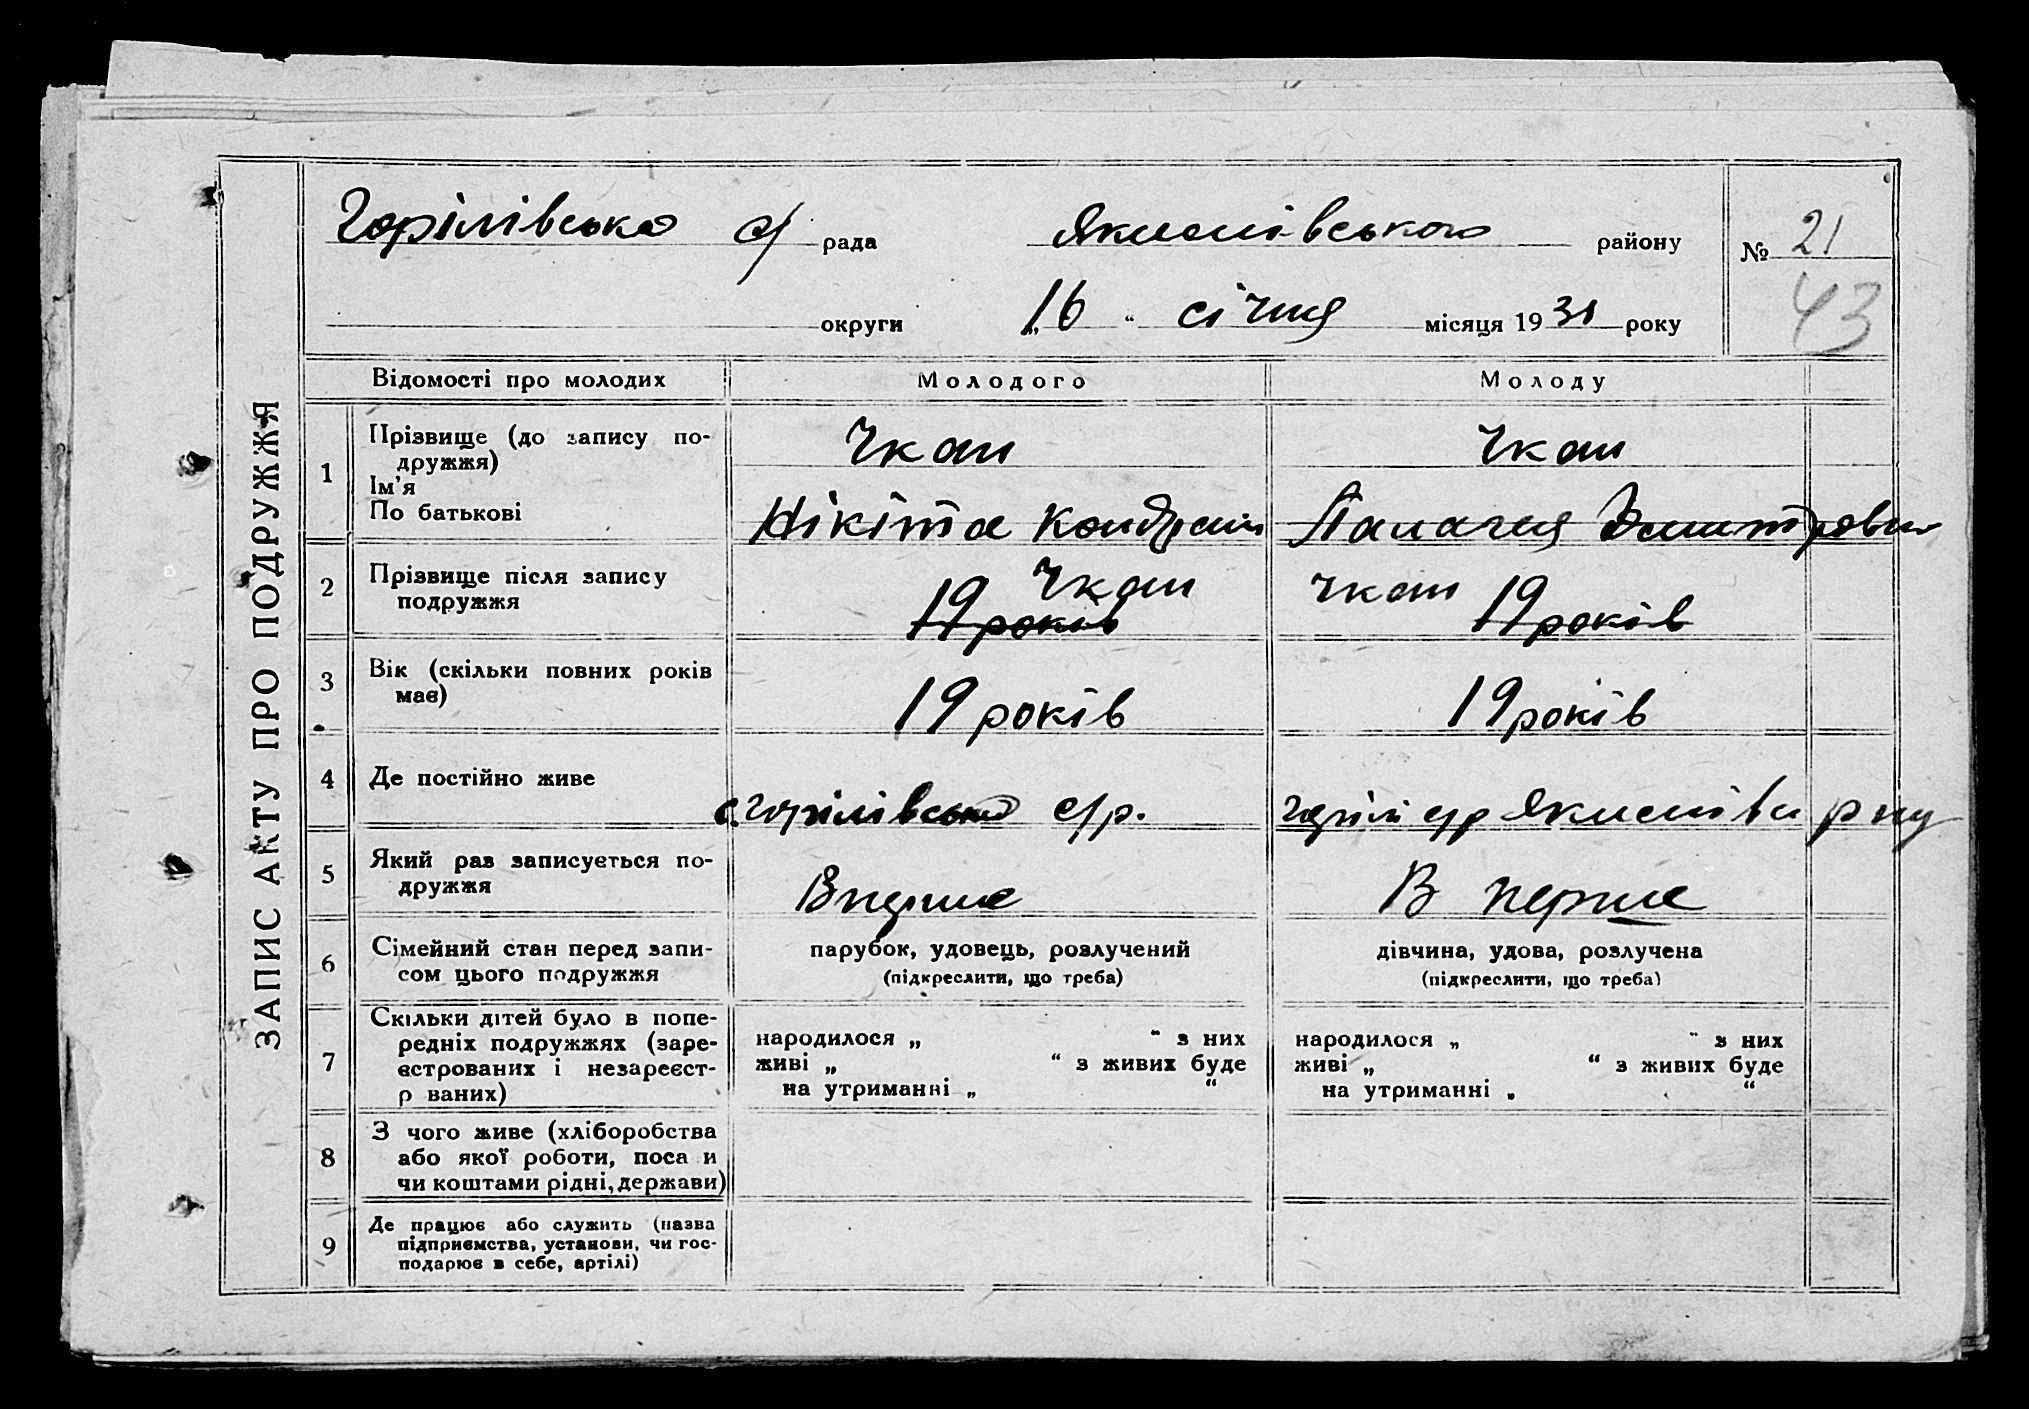 ЗАПИС АКТУ ПРО ПОДРУЖЖЯ
Горілівська с/ рада Якимівського району № 21
округи „16“ січня місяця 1931 року 43
Відомості про молодих Молодого Молоду
1 Прізвище (до запису по-
дружжя)
Ім'я
По батькові
Чкан
Нікіта Кондрат
Чкан
Палагея Дмитровна
2 Прізвище після запису
подружжя
Чкан
19 років
Чкан 19 років
3 Вік (скільки повних років
має)
19 років
19 років
4 Де постійно живе
с. Горілівська с/р.
Горілі с/р Якимівсь р ну
5 Який раз записується по-
дружжя
Вперше
В перше
6 Сімейний стан перед запи-
сом цього подружжя
парубок, удовець, розлучений
(підкреслити, що треба)
дівчина, удова, розлучена
(підкреслити, що треба)
7 Скільки дітей було в попе-
редніх подружжях (заре-
єстрованих і незареєст-
р ваних)
народилося „ “ з них
живі „ “ з живих буде
на утриманні „ “
народилося „ “ з них
живі „ “ з живих буде
на утриманні „ “
8 З чого живе (хліборобства
або якої роботи, поса и
чи коштами рідні, держави)
9 Де працює або служить (назва
підприємства, установи, чи гос-
подарює в себе, артілі)